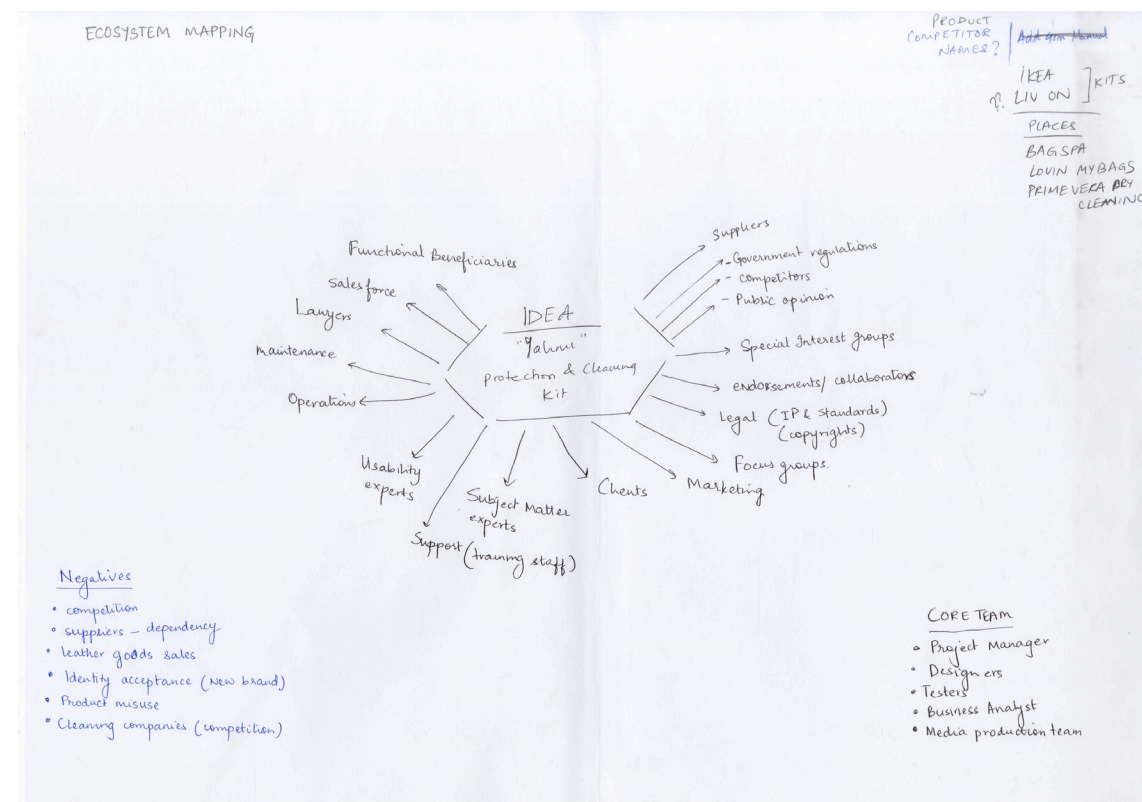 ECOSYSTEM MAPPING
PRODUCT
COMPETITOR
NAMES?
IKEA
LIV ON
KITS
PLACES
BAGSPA
LOVIN MYBAGS
PRIMEVERA DRY
CLEANING
Functional Beneficiaries
Salesforce
Lawyers
Maintenance
Operations
Usability
experts
Support (training staff)
Subject Matter
experts
Clients
Marketing
Focus groups.
Legal (IP & Standards)
(copyrights)
endorsements/collaborators
Special Interest groups
- Public opinion
- competitors
- Government regulations
Suppliers
IDEA
Protection & Cleaning
Kit
Negatives
• competition
• suppliers – dependency
• leather goods sales
• Identity acceptance (New brand)
• Product misuse
• Cleaning companies (competition)
CORE TEAM
• Project Manager
• Designers
• Testers
• Business Analyst
• Media production team